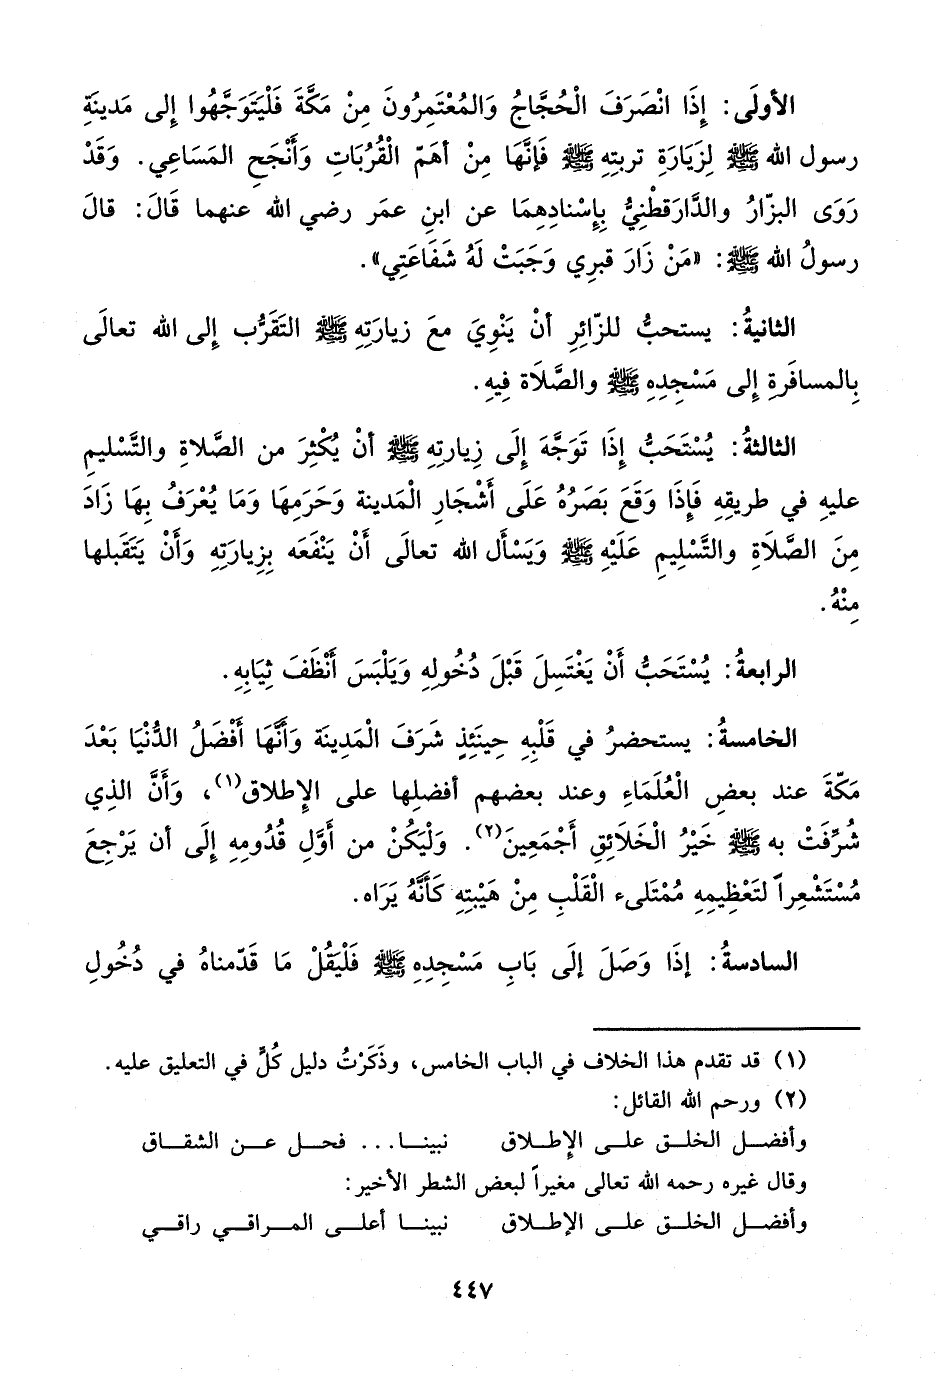 الأولَى: إِذَا انْصَرَفَ الْحُجَّاجُ وَالمُعْتَمِرُونَ مِنْ مَكَّةَ فَلْيَتَوَجَّهُوا إِلى مَدينَةِ
رسول الله ﷺ لِزِيَارَةِ تربتِهِ ﷺ فَإِنَّهَا مِنْ أهَمّ الْقُرُبَاتِ وَأَنْجَحِ المَسَاعِي. وَقَدْ
رَوَى البزّارُ والدَّارَقطْنِيُّ بِإِسْنادِهِمَا عن ابنِ عمَر رضي الله عنهما قَالَ: قالَ
رسولُ الله ﷺ: «مَنْ زَارَ قبرِي وَجَبَتْ لَهُ شَفَاعَتِي».
الثانيةُ: يستحبُّ للزّائِرِ أنْ يَنْوِيَ معَ زيارَتِهِ ﷺ التَقَرُّب إِلى الله تعالَى
بِالمسافَرةِ إِلى مَسْجدِهِ ﷺ والصَّلَاة فِيهِ.
الثالثةُ: يُسْتَحَبُّ إِذَا تَوَجَّهَ إِلَى زِيارتِهِ ﷺ أنْ يُكْثِرَ من الصَّلاةِ والتَّسْليمِ
عليهِ في طريقِهِ فَإِذَا وَقَعَ بَصَرُهُ عَلَى أَشْجَارِ الْمَدينة وَحَرَمِهَا وَمَا يُعْرَفُ بِهَا زَادَ
مِنَ الصَّلَاةِ والتَّسْلِيمِ عَلَيْهِ ﷺ وَيَسْأَل الله تعالَى أَنْ يَنْفَعَه بِزِيارَتِهِ وَأَنْ يَتَقَبلها
مِنْهُ.
الرابعةُ: يُسْتَحَبُّ أَنْ يَغْتَسِلَ قَبْلَ دُخُولِهِ وَيَلْبَسَ أَنْظَفَ ثِيَابِهِ.
الخامسةُ: يستحضرُ في قَلْبِهِ حِينَئِذٍ شَرَفَ الْمَدِينَة وَأَنَّهَا أَفْضَلُ الدُّنْيَا بَعْدَ
مَكّةَ عند بعضِ الْعُلَمَاءِ وعند بعضهم أفضلِها على الإطلاق(١)، وَأَنَّ الذِي
شُرِّفَتْ به ﷺ خَيْرُ الْخَلَائِقِ أَجْمَعِينَ(٢). وَلْيَكُنْ من أوَّلِ قُدُومِهِ إِلَى أن يَرْجِعَ
مُسْتَشْعِراً لتَعْظِيمِهِ مُمْتَلىء الْقَلْبِ مِنْ هَيْبَتِهِ كَأَنَّهُ يَرَاه.
السادسةُ: إذَا وَصَلَ إلَى بَابِ مَسْجِدِهِ ﷺ فَلْيَقُلْ مَا قَدّمناهُ في دُخُولِ
(١) قد تقدم هذا الخلاف في الباب الخامس، وذَكَرْتُ دليل كُلٍّ في التعليق عليه.
(٢) ورحم الله القائل:
وأفضـل الخلـق علـى الإِطـلاق نبينـا... فحـل عـن الشقـاق
وقال غيره رحمه الله تعالى مغيراً لبعض الشطر الأخير:
وأفضـل الخلـق علـى الإطـلاق نبينـا أعلـى المـراقـي راقـي
٤٤٧